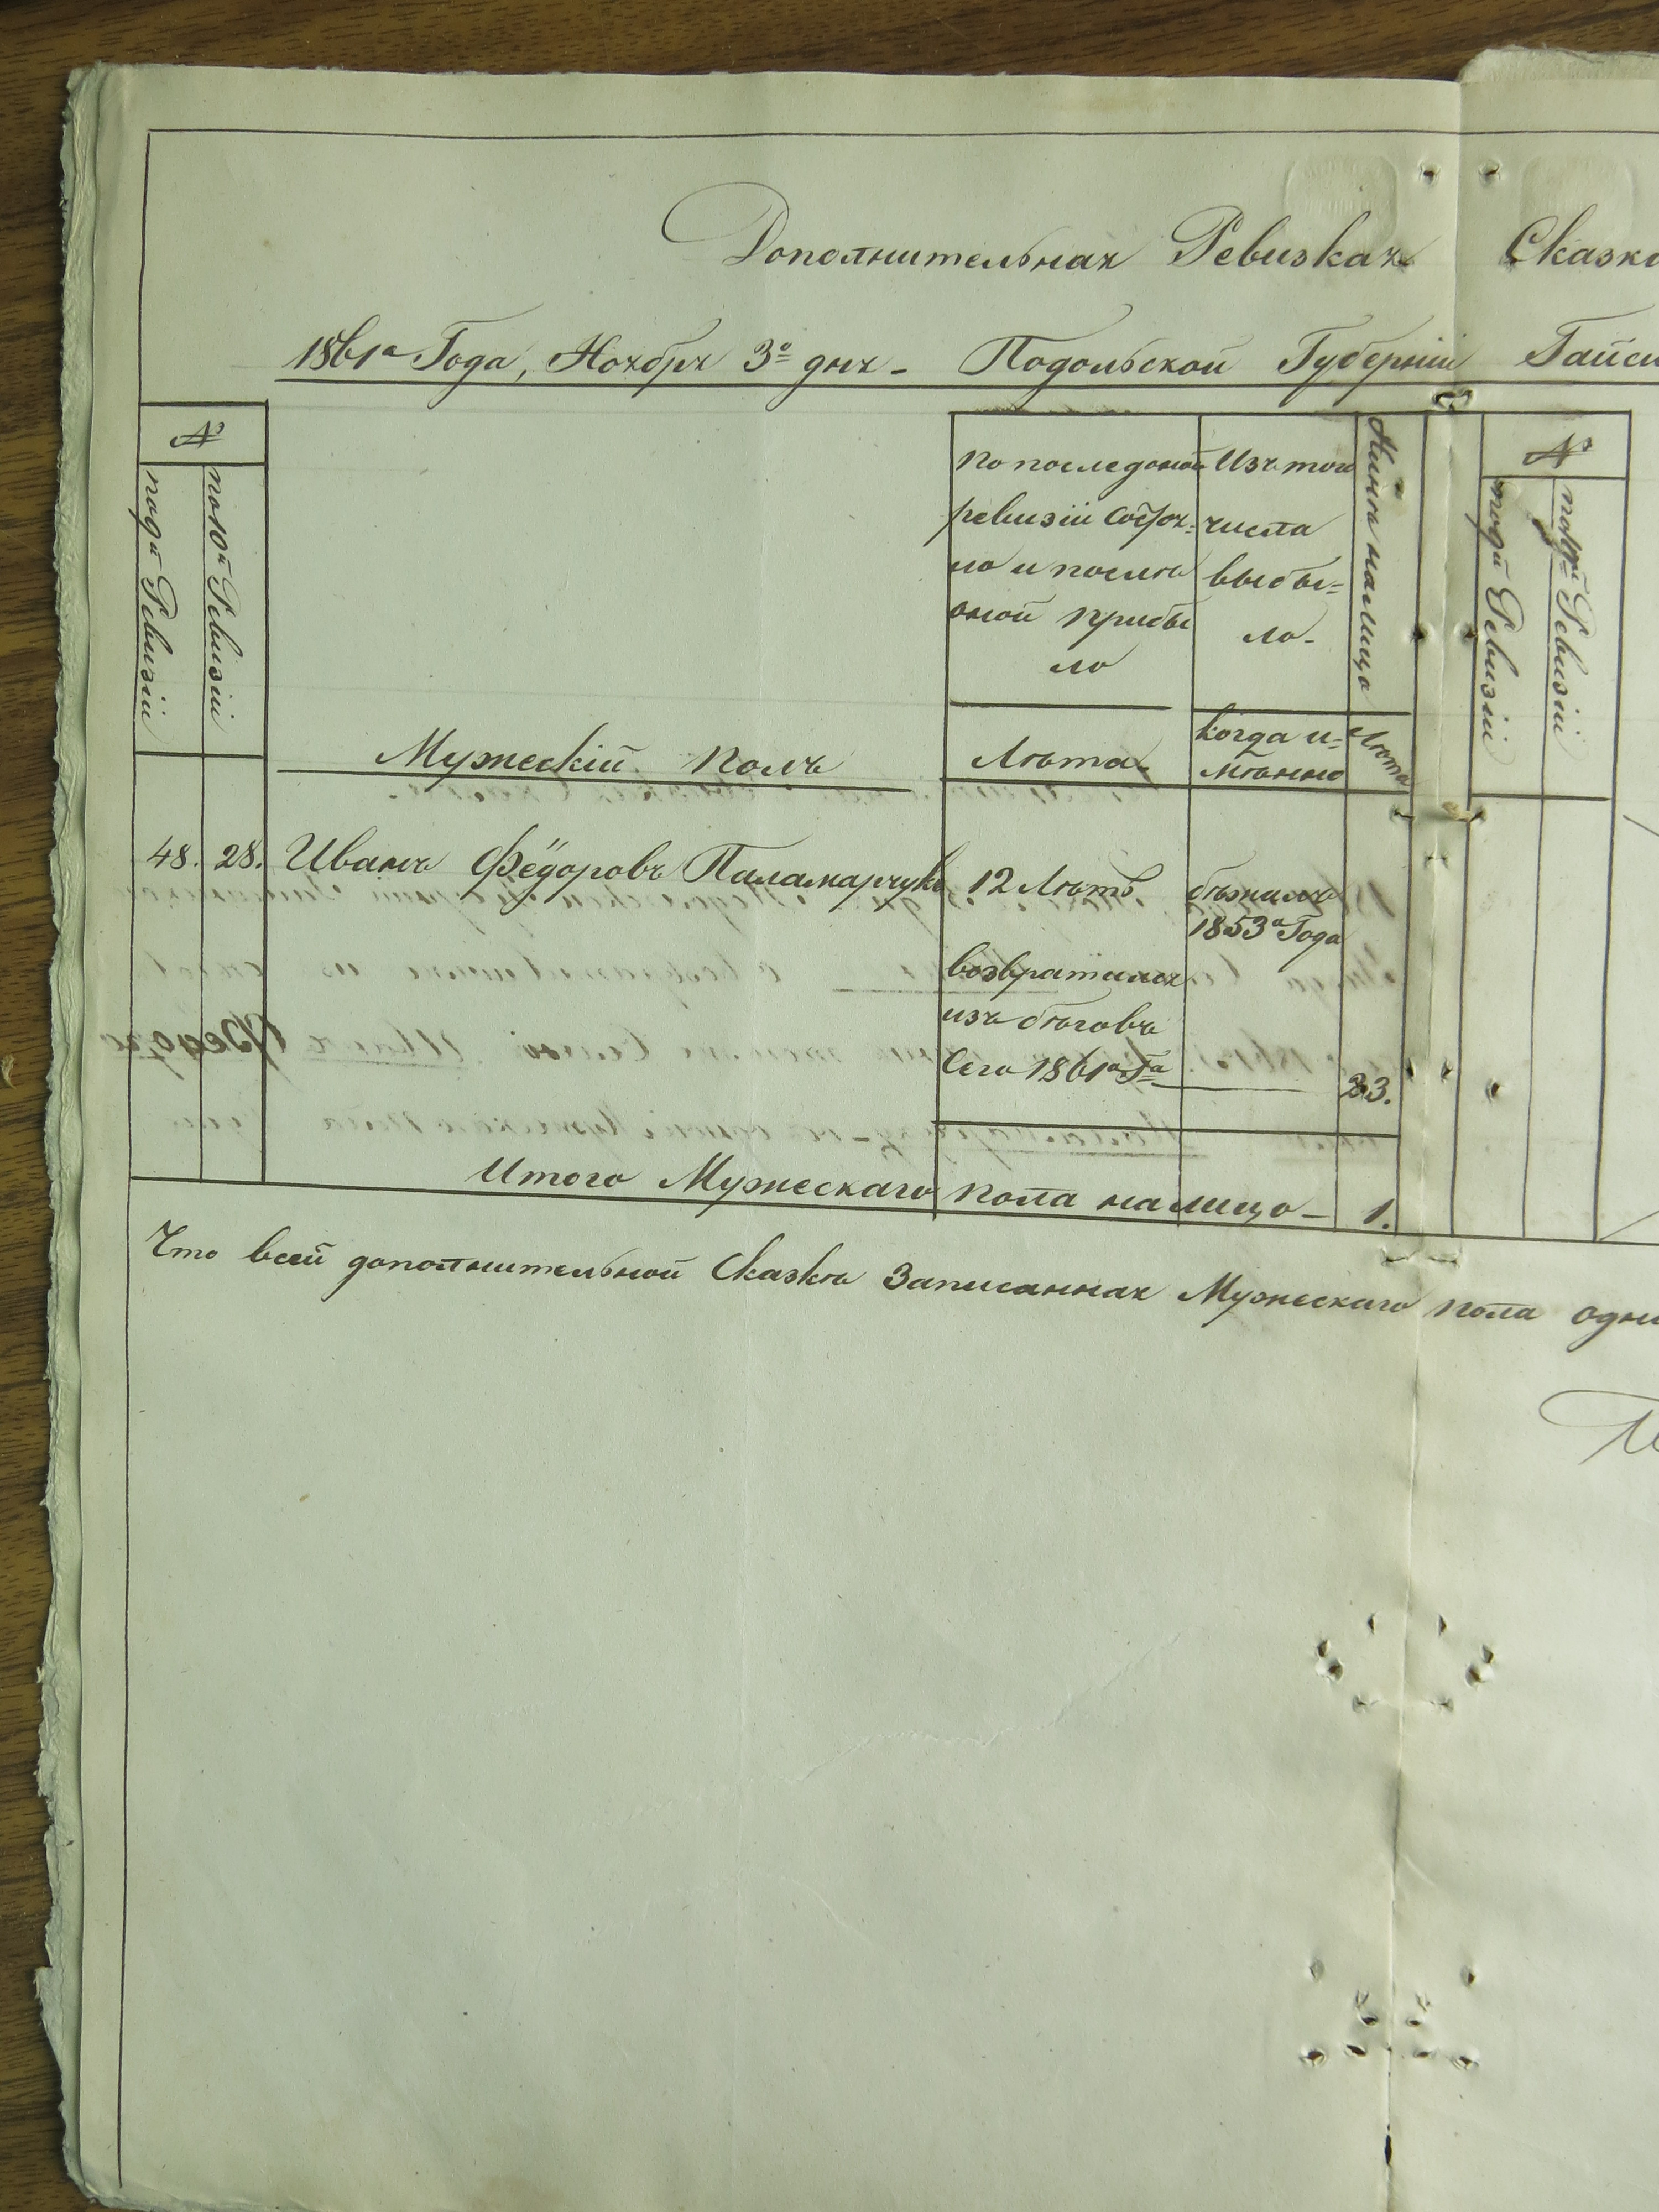 Дополнительная Ревизкая Сказка
1861а Года, Ноября 3о дня - Подольской Губерніи Гайси
№
по 9й Ревизіи
по 10й Ревизіи
Мужескій Полъ
По последней
ревизіи состоя-
ло и после
оной прибы
ло
Лѣта
Изъ того
числа
выбы-
ло-
когда и-
мѣнно
Нынѣ налицо
Лѣта
№
по 9й Ревизіи
Ревизіи
48. 28. Иванъ Фёдоровъ Паламарчукъ 12 Лѣтъ бѣжалъ
1853а Года
возвратился
изъ бѣговъ
Сего 1861а Га 23.
Итого Мужескаго пола налицо - 1.
Что всей дополнительной Сказкѣ Записанная Мужескаго пола одн